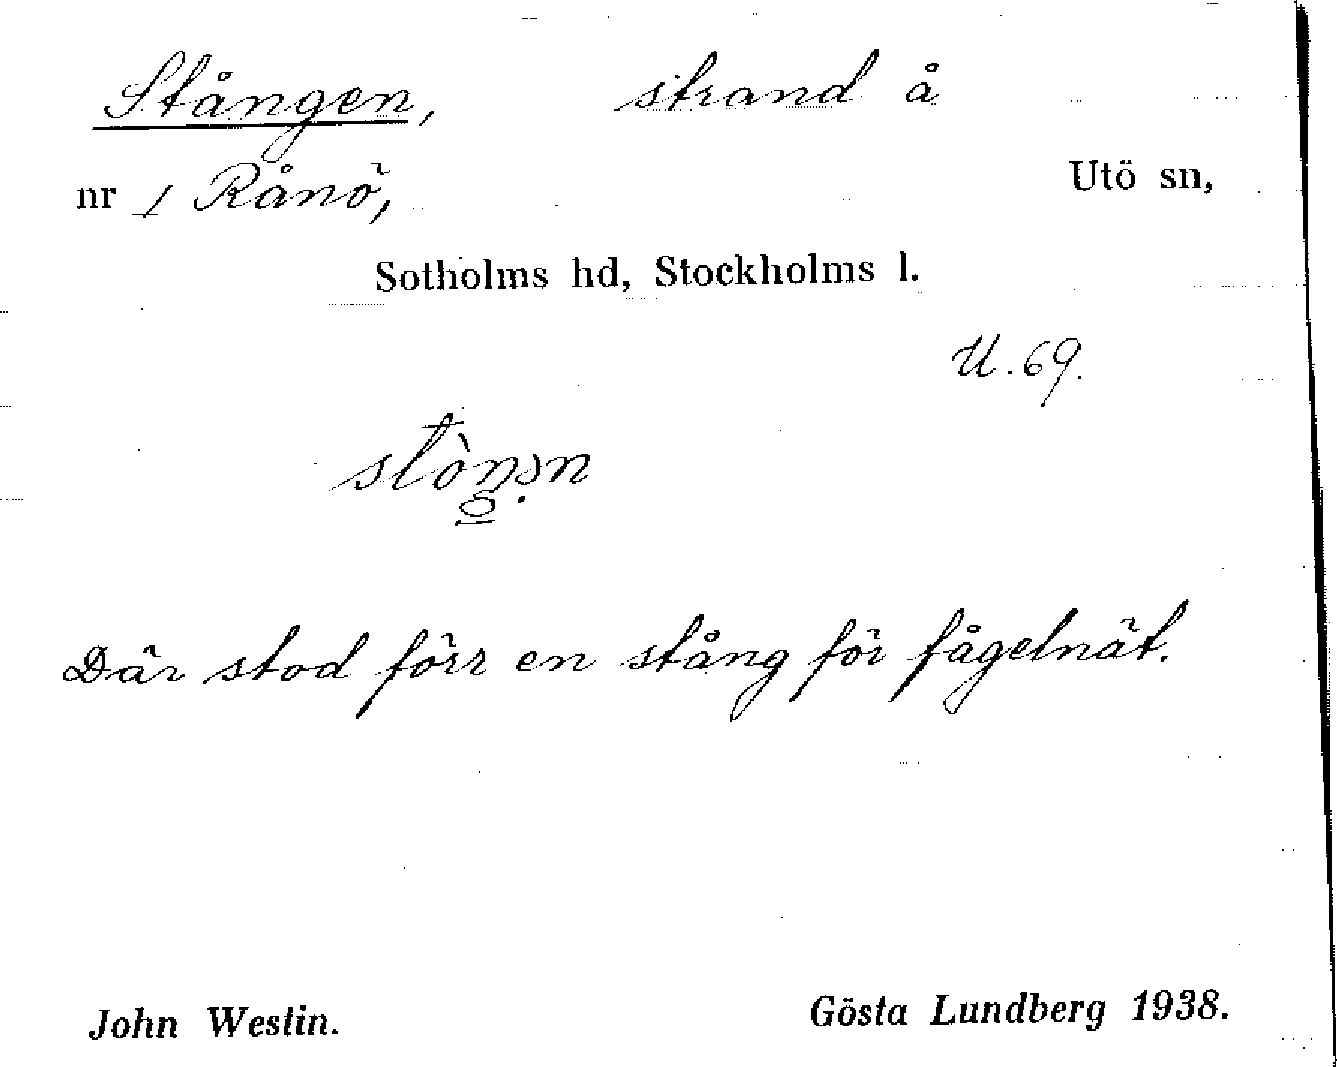 Stången, strand å
nr 1 Rånö, Utö sn,
Sotholms hd, Stockholms l.
U. 69.
Där stod förr en stång för fågelnät.
John Westin. Gösta Lundberg 1938.